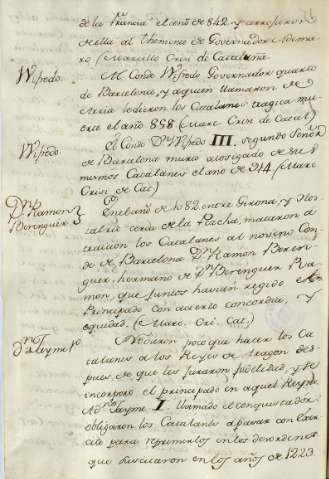 de la Francia el año de 842. y arrojaron
de ella al thenime de Governador Ademaro
(Marcillo Crisi de Cataluña
Wifredo. El Conde Wifredo Governador quarto
de Barcelona, y aquien llamaron de
Arria le dieron los Catalanes tragica muerte
el año 858 (Marc. Crisi de Catal)
Wifredo. El Conde Dn Wifredo III. segundo Señor
de Barcelona murio atosigado de sus
mismos Catalanes el año de 914 (Marc
Crisi de Cat)
Dn Ramon Berenguer
En el año de 1082. entre Girona, y Hostalric
cerca de la Percha, mataron a
traicion los Catalanes al noveno Conde
de Barcelona Dn Ramon Berenguer,
hermano de Dn Berenguer Ramon,
que juntos havian regido el
Principado con acierto concordia, y
equidad. (Marc. Cri. Cat.)
Dn Jayme 1o
Tuvieron poco que hacer los Catalanes
a los Reyes de Aragon despues
de que les juraron fidelidad, y se
incorporó el principado en aquel Reyno
A Dn Jayme I. llamado el conquistador,
obligaron los Catalans a pasar con Exercito
para reprimirlos en los desordenes
que suscitaron en los años de 1223.